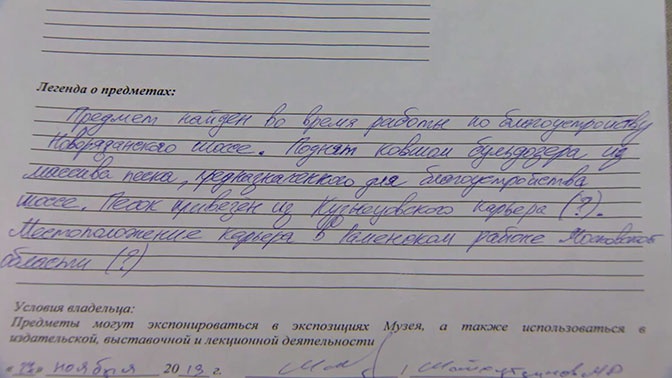 Легенда о предметах:
Предмет найден во время работы по благоустройству
Новорязанского шоссе. Поднят ковшом бульдозера из
массива песка, предназначенного для благоустройства
шоссе. Песок привезен из Кузнецовского карьера (?).
Местоположение карьера в Раменском районе Московской
области (?)
Условия владельца:
Предметы могут экспонироваться в экспозициях Музея, а также использоваться в
издательской, выставочной и лекционной деятельности
ноября 2013 г.